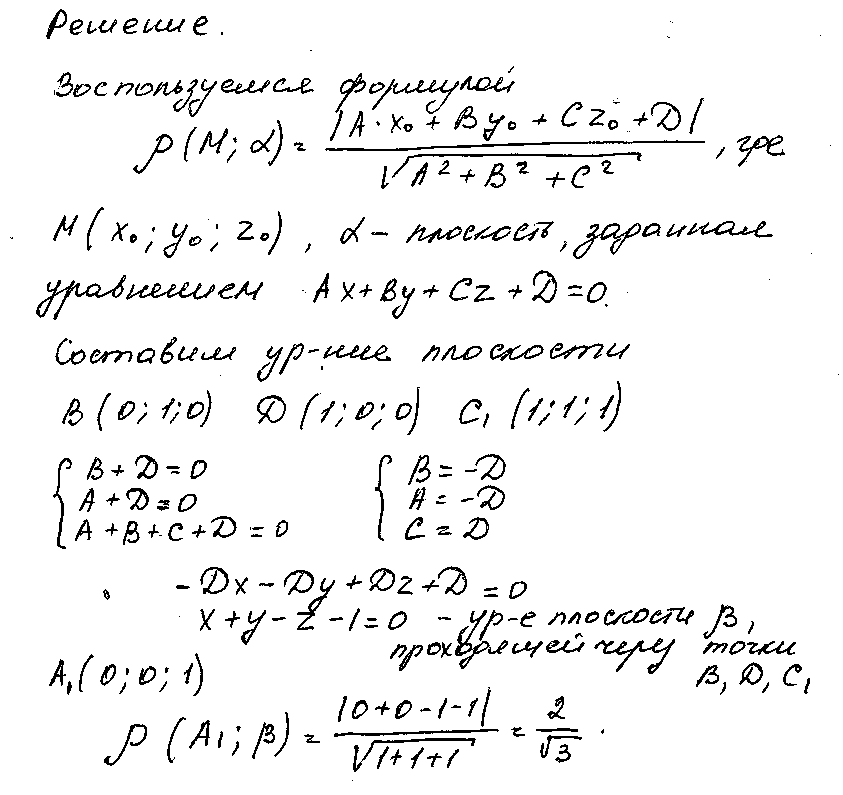 Решение.
Воспользуемся формулой
ρ(M; α) = |A·x₀ + By₀ + Cz₀ + D| / √(A² + B² + C²), где
M(x₀; y₀; z₀), α – плоскость, заданная
уравнением Ax + By + Cz + D = 0.
Составим ур-ние плоскости
B(0; 1; 0) D(1; 0; 0) C₁(1; 1; 1)
{ B + D = 0 { B = -D
A + D = 0 A = -D
A + B + C + D = 0 C = D
-Dx - Dy + Dz + D = 0
x + y - z - 1 = 0 - ур-е плоскости β,
проходящей через точки
A₁(0; 0; 1) B, D, C₁
ρ(A₁; β) = |0 + 0 - 1 - 1| / √(1 + 1 + 1) = 2/√3.